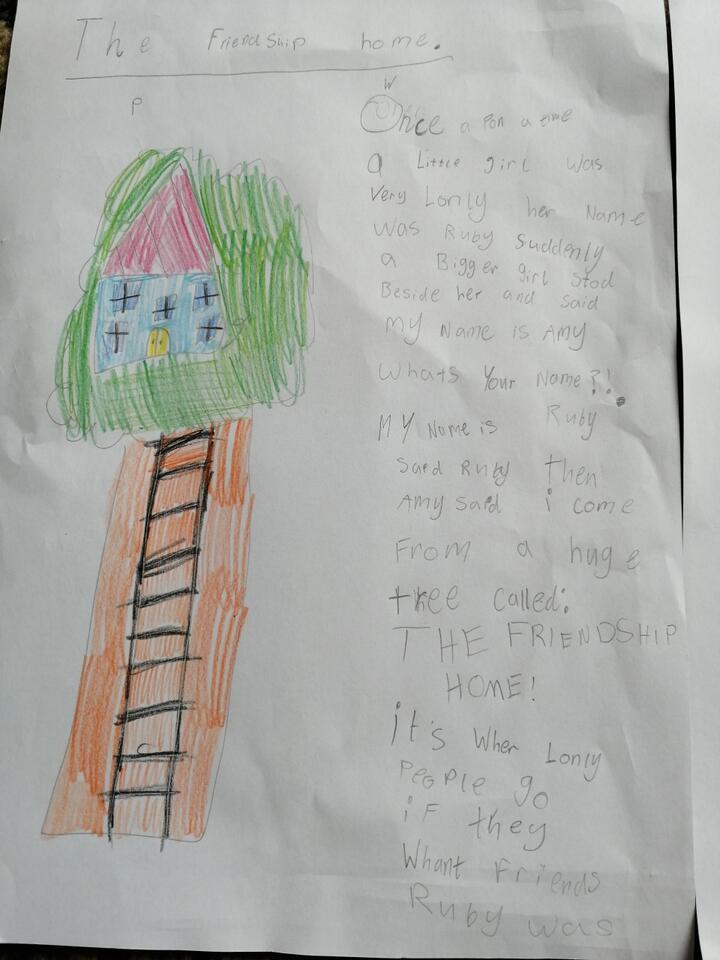 The Friendship home.
P
W
Once a Pon a time
a Little girl was
very Lonly her Name
was Ruby Suddenly
a Bigger girl Stod
Beside her and said
My Name is Amy
Whats Your Name?!.
MY Name is Ruby
Said Ruby then
Amy Said i come
From a huge
tree called:
THE FRIENDSHIP
HOME!
it's Wher Lonly
PeoPle go
iF they
Whant Friends
Ruby was